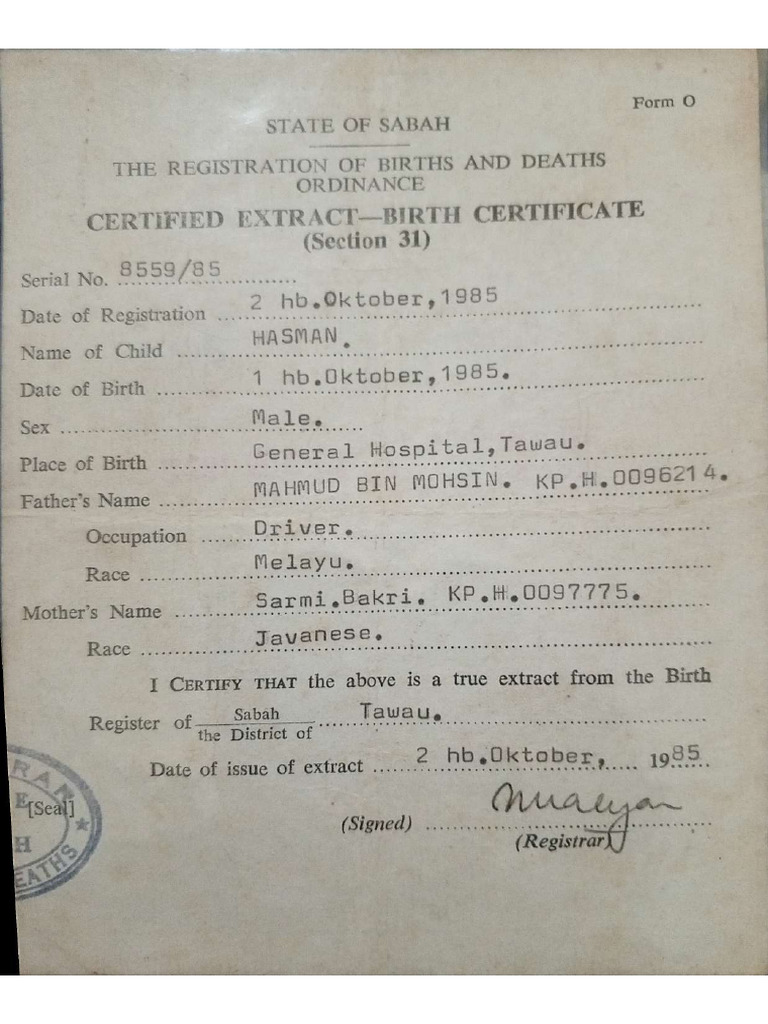 Form O
STATE OF SABAH
THE REGISTRATION OF BIRTHS AND DEATHS
ORDINANCE
CERTIFIED EXTRACT—BIRTH CERTIFICATE
(Section 31)
Serial No. 8559/85
Date of Registration 2 hb.Oktober,1985
Name of Child HASMAN.
Date of Birth 1 hb.Oktober,1985.
Sex Male.
Place of Birth General Hospital,Tawau.
Father's Name MAHMUD BIN MOHSIN. KP.H.0096214.
Occupation Driver.
Race Melayu.
Mother's Name Sarmi.Bakri. KP.H.0097775.
Race Javanese.
I CERTIFY THAT the above is a true extract from the Birth
Register of Sabah Tawau.
the District of
Date of issue of extract 2 hb.Oktober, 1985
[Seal]
(Signed)
(Registrar)